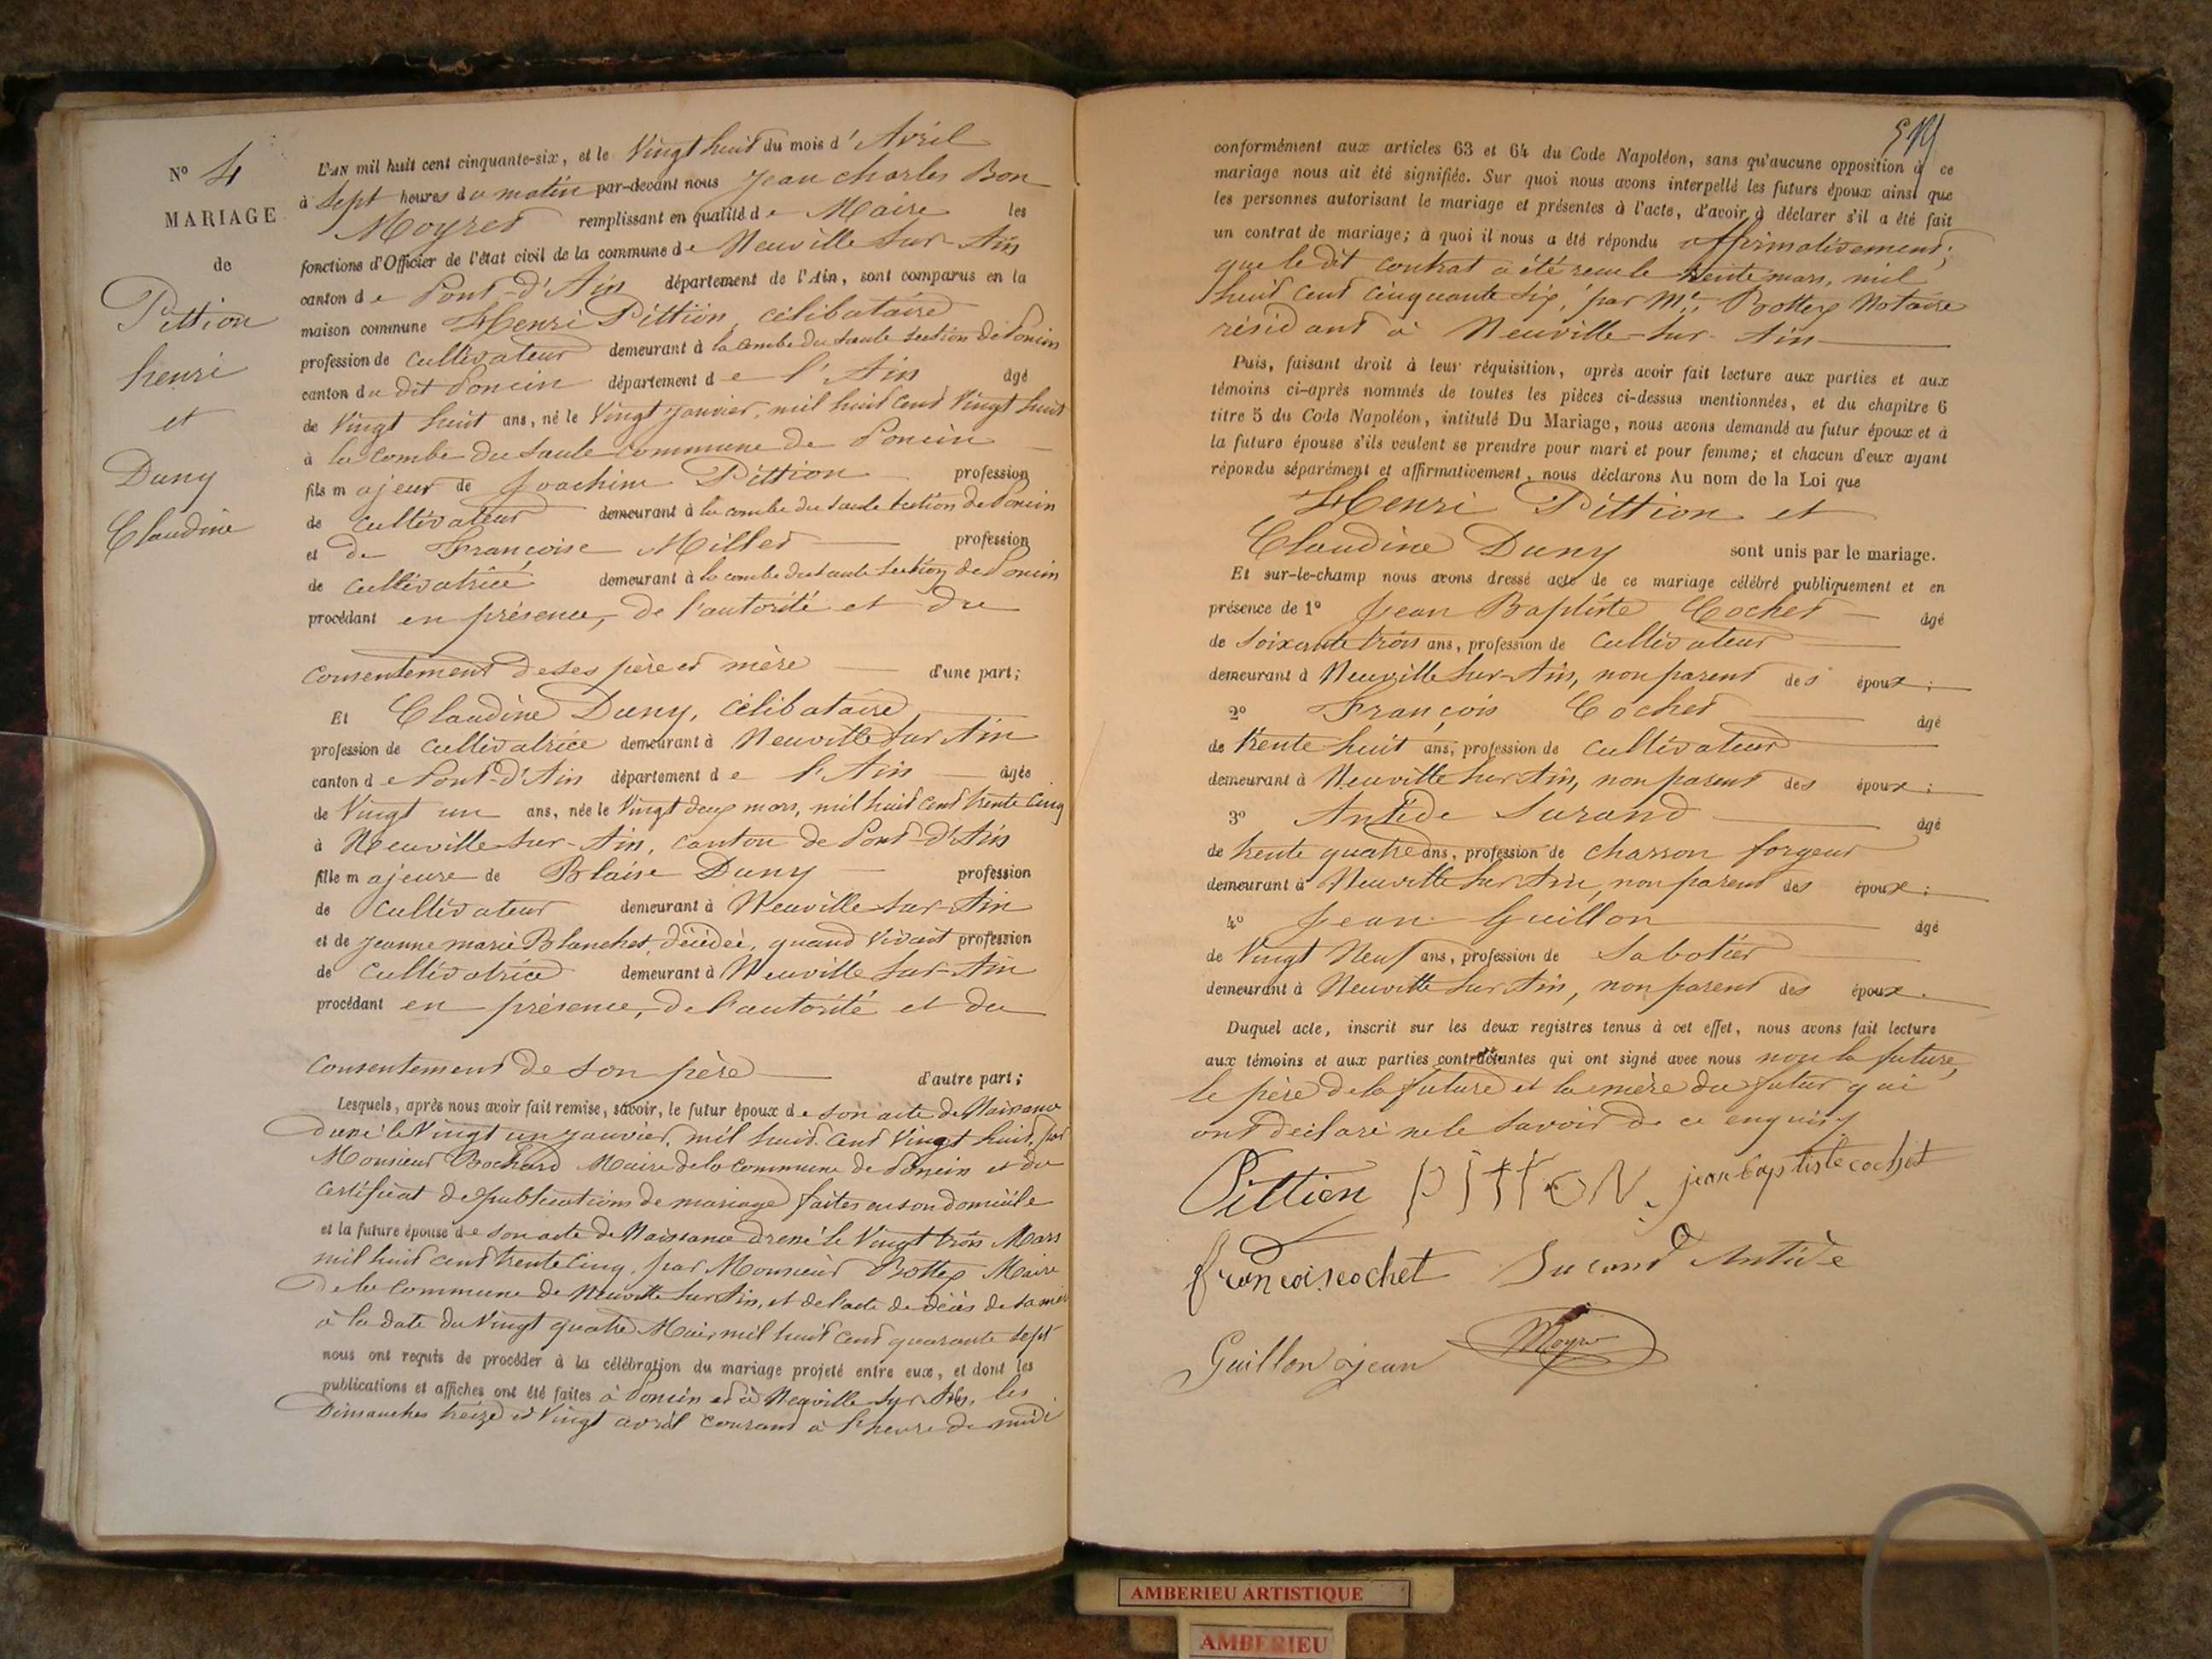 N° 4
MARIAGE
de
Pittion
henri
et
Duny
Claudine
L'AN mil huit cent cinquante-six, et le Vingt huit du mois d'Avril
à Sept heures du matin par-devant nous Jean Charles Bon
Moyret remplissant en qualité de Maire les
fonctions d'Officier de l'état civil de la commune de Neuville sur-Ain
canton de Pont-d'Ain département de l'Ain, sont comparus en la
maison commune Henri Pittion, célibataire
profession de cultivateur demeurant à la combe du Saule section de Poncin
canton du dit Poncin département de l'Ain âgé
de Vingt huit ans, né le Vingt Janvier, mil huit cent Vingt huit
à la combe du Saule commune de Poncin
fils majeur de Joachim Pittion profession
de cultivateur demeurant à la combe du Saule section de Poncin
et de Françoise Millet profession
de cultivatrice demeurant à la combe du Saule section de Poncin
procédant en présence, de l'autorité et du
consentement de ses père et mère d'une part;
Et Claudine Duny, célibataire
profession de cultivatrice demeurant à Neuville sur Ain
canton de Pont-d'Ain département de l'Ain âgée
de Vingt un ans, née le Vingt deux mars, mil huit cent trente cinq
à Neuville-sur-Ain, canton de Pont-d'Ain
fille majeure de Blaise Duny profession
de cultivateur demeurant à Neuville sur-Ain
et de Jeanne marie Blanchet, décédée, quand vivait profession
de cultivatrice demeurant à Neuville sur-Ain
procédant en présence, de l'autorité et du
consentement de son père d'autre part;
Lesquels, après nous avoir fait remise, savoir, le futur époux de son acte de Naissance
dressé le Vingt un janvier, mil huit cent Vingt huit, par
Monsieur Bochard Maire de la commune de Poncin et du
certificat de publications de mariage faites en son domicile
et la future épouse de son acte de Naissance dressé le Vingt trois Mars
mil huit cent trente cinq, par Monsieur Bottex Maire
De la commune de Neuville sur Ain, et de l'acte de décès de sa mère
à la date du Vingt quatre Mai, mil huit cent quarante sept
nous ont requis de procéder à la célébration du mariage projeté entre eux, et dont les
publications et affiches ont été faites à Poncin et à Neuville sur Ain, les
Dimanches treize et Vingt avril courant à l'heure de midi
conformément aux articles 63 et 64 du Code Napoléon, sans qu'aucune opposition à ce
mariage nous ait été signifiée. Sur quoi nous avons interpellé les futurs époux ainsi que
les personnes autorisant le mariage et présentes à l'acte, d'avoir à déclarer s'il a été fait
un contrat de mariage; à quoi il nous a été répondu affirmativement;
que le dit contrat a été reçu le trente mars, mil
huit cent cinquante six, par Me. Bottex Notaire
résidant à Neuville-sur-Ain
Puis, faisant droit à leur réquisition, après avoir fait lecture aux parties et aux
témoins ci-après nommés de toutes les pièces ci-dessus mentionnées, et du chapitre 6
titre 5 du Code Napoléon, intitulé Du Mariage, nous avons demandé au futur époux et à
la future épouse s'ils veulent se prendre pour mari et pour femme; et chacun d'eux ayant
répondu séparément et affirmativement, nous déclarons Au nom de la Loi que
Henri Pittion et
Claudine Duny sont unis par le mariage.
Et sur-le-champ nous avons dressé acte de ce mariage célébré publiquement et en
présence de 1° Jean Baptiste Cochet âgé
de soixante trois ans, profession de cultivateur
demeurant à Neuville sur-Ain, non parent des époux;
2° François Cochet âgé
de trente huit ans, profession de cultivateur
demeurant à Neuville sur Ain, non parent des époux;
3° Antide Surand âgé
de trente quatre ans, profession de charron forgeur
demeurant à Neuville sur Ain, non parent des époux;
4° Jean Guillon âgé
de Vingt Neuf ans, profession de Sabotier
demeurant à Neuville sur Ain, non parent des époux.
Duquel acte, inscrit sur les deux registres tenus à cet effet, nous avons fait lecture
aux témoins et aux parties contractantes qui ont signé avec nous non la future,
le père de la future et la mère du futur qui
ont déclaré ne le savoir de ce enquis
Pittion PittON jean baptiste cochet
francois cochet Surand Antide
Guillon jean Moyret
AMBERIEU ARTISTIQUE
AMBERIEU